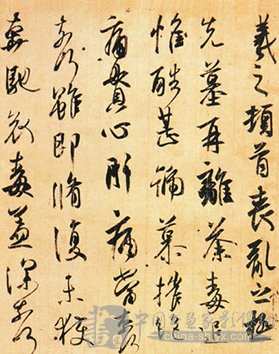 羲之頓首喪亂之極
先墓再離荼毒
惟酷甚號慕摧絕
痛貫心肝痛當奈
奈何雖即脩復未獲
奔馳哀毒益深奈何